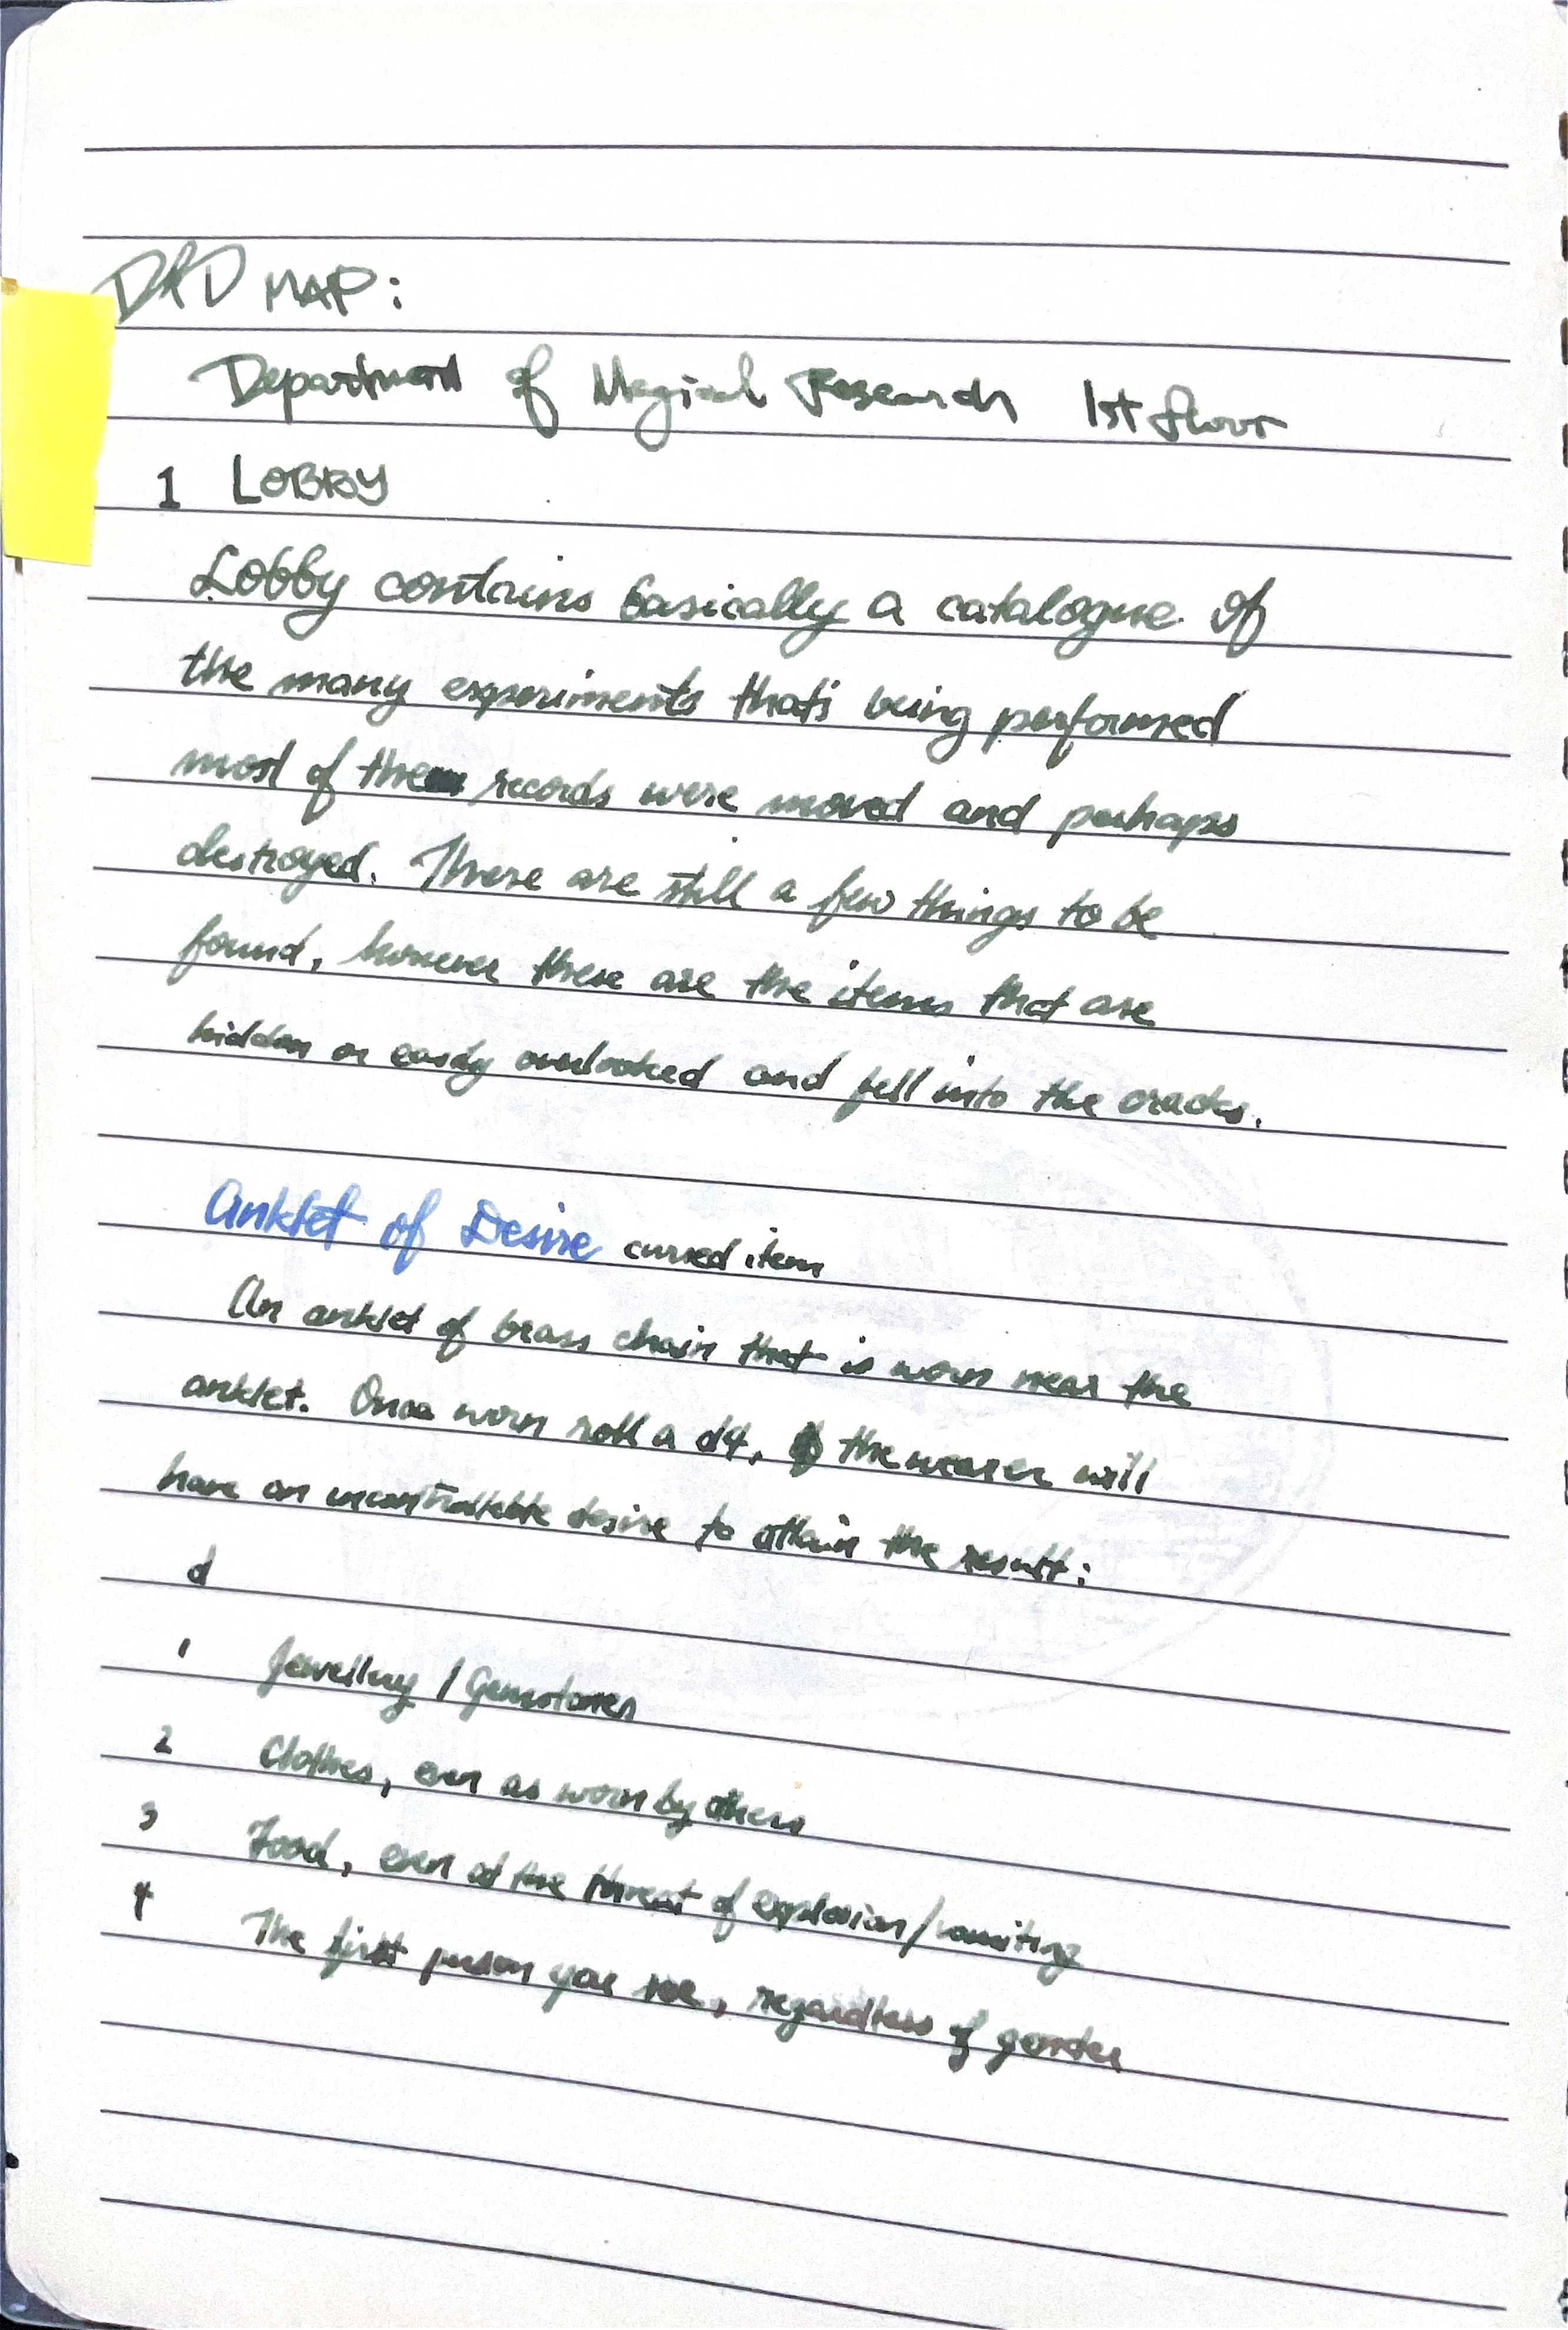 D&D MAP:
Department of Magical Research 1st floor
1 LOBBY
Lobby contains basically a catalogue of
the many experiments that's being performed
most of the records were moved and perhaps
destroyed. There are still a few things to be
found, however these are the items that are
hidden or easily overlooked and fell into the cracks.
Anklet of Desire cursed item
An anklet of brass chain that is worn near the
anklet. Once worn roll a d4, the wearer will
have an uncontrollable desire to attain the result:
d
1 Jewellery / Gemstones
2 Clothes, even as worn by others
3 Food, even at the threat of explosion/vomiting
4 The first person you see, regardless of gender